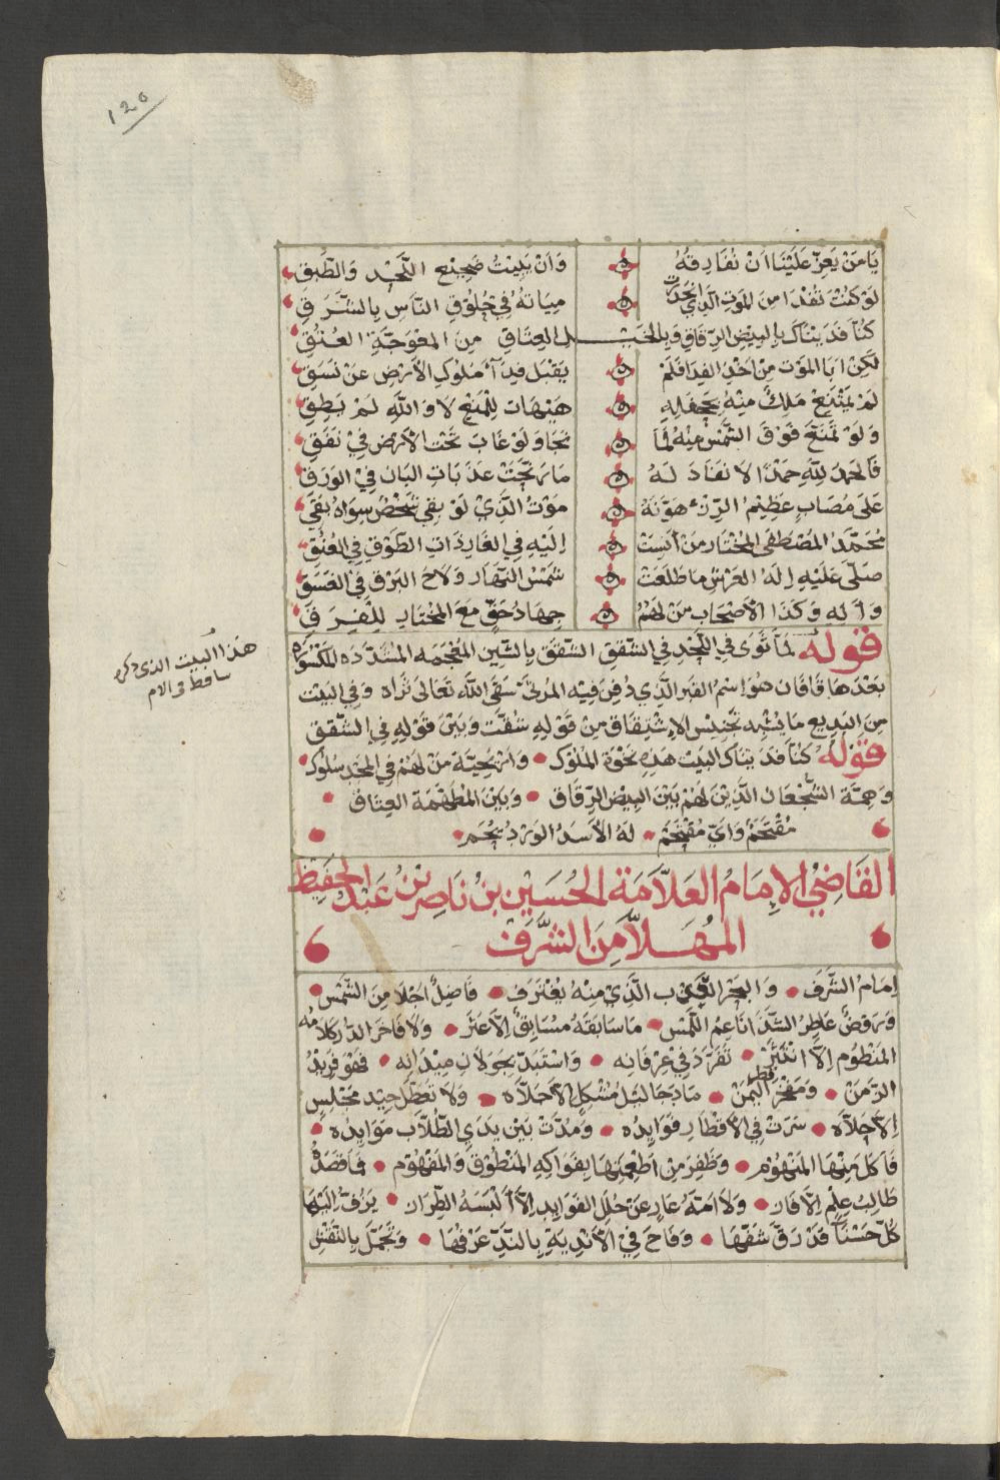 ١٢٥
يَا مَنْ يَعِزُّ عَلَيْنَا اَنْ نُفَارِقَهُ وَاَنْ يَبِيْتُ ضَجِيْع اللَّحْدِ وَالطَّبَقِ
لَوْ كُنْتَ تُفْدَا مِنَ المَوْتِ الَّذِي مِيَاتهُ فِي حُلُوْقِ النَّاسِ بِالشَّرَقِ
كُنَّا فَدَيْنَاكَ بِالبِيْضِ الرِّقَاقِ وَبِالخَيْل العِتَاقِ مِنَ المعْوَجَّةِ العُنُقِ
لَكِنْ ابَا المَوْت مِنْ اَخْذِ الفِدَا فَلَمْ يَقْبَل فِدَآءَ مُلُوْكِ الأَرْضِ عَنْ نَسَقِ
لَمْ يَمْتَنِعْ مَلِكٌ مِنْهُ بِجَحْفَلِهِ هَيْهَات لِلْمَنْعِ لَا وَاللهِ لَمْ يَطِقِ
وَلَوْ تَمَنَّعَ فَوْقَ الشَّمْسْ مِنْهُ لَمَا نَجَا وَلَوْ غَابَ تَحْتَ الأَرْض فِيْ نَفَقِ
فَالحَمْدُ لِلّهِ حَمْدًا لَا نَفَادَ لَهُ مَا رَنَّحَتْ عَذَبَاتِ البَانِ فِيْ الوَرَقِ
عَلَى مُصَابٍ عَظِيْمُ الرِّزْءِ هَوَّنَهُ مَوْتُ الَّذِيْ لَوْ بَقِي شَخْصٌ سِوَاهُ بَقِي
مُحَمَّد المُصْطَفَى المُخْتَار مَنْ اِلَيْهِ فِي الغَايِ ذَات الطَّوْقِ فِي العُنُقِ
صَلَّى عَلَيْهِ اِلَهُ العَرْشِ مَا طَلَعَتْ شَمْسُ النَّهَار وَلَاحَ البَرْق فِي الغَسَقِ
وَآلِهِ وَكَذَا الأَصْحَابِ مَنْ لَهُمُ جِهَادُ حَقٍّ مَعَ المُخْتَارِ لِلْفِرَقِ
قوله لَمَّا ثَوَى فِي اللَّحْدِ فِي الشَّقَقِ الشَّقَق بِالشِّينِ المُعْجَمَه المُشَدَّدَه المَكْسُوْرَه
بَعْدَهَا قَافَان هُوَ اِسْمُ القَبر الَّذِي دُفِنَ فِيْهِ المَرْثِيّ سَقَى اللَّه تَعَالَى ثَرَاه وَفِي البَيْت
مِنَ البَدِيع مَا يُشْبِه تَجْنِيْسَ الاِشْتِقَاق مِنْ قَوْلِهِ شَقَّت وَبَيْنَ قَوْلِهِ فِي الشَّقَقِ
قَوْلُهُ كُنَّا فَدَيْنَاكَ البَيْت هَذِهِ نَخْوَةُ المُلُوْكِ وَاَرْيَحِيَّة مَنْ لَهُمْ فِي المَجْدِ سُلُوْك
وَهِمَّة الشُّجْعَان الَّذِيْنَ لَهُمْ بَيْنَ البِيْضِ الرِّقَاق وَبَيْنَ المُطَهَّمَة العِتَاق
مُقْتَحَمٌ وَايّ مُقْتَحَمٌ لَهُ الأَسَدُ الوَرْدُ يُحْجِم
القَاضِيْ الاِمَامُ العَلَّامَة الحُسَيْن بْنُ نَاصِر بْن عَبْد الحَفِيْظ
المُهَلَّا مِنَ الشَّرَف
هَذَا البَيت الذى ذكره
ساقط
اِمَامُ الشَّرَف وَالبَحْر الَّذِيْ مِنْهُ يُغْتَرَف فَاضِلٌ اَجْلَا مِنَ الشَّمْس
وَرَوْضٌ عَاطِرُ الشَّذَا نَاعِمُ اللَّمْس مَا سَابَقَهُ مُسَابِقٌ اِلَّا عَثَر وَلَا فَاخَرَ الدُّر كَلَامُه
المَنْظُوم اِلَّا انْتَثَرَ تَفَرَّدَ فِيْ عِرْفَانِه وَاسْتَبَدَّ بِجَوَلَانِ مِيْدَانِه فَهْوَ فَرِيْدُ
الزَّمَنْ وَمَفْخَرُ قطر اليَمَنْ مَا دَجَا لَيْل مُشْكِلٍ اِلَّا جَلَّاه وَلَا تَعَطَّلَ جِيْد مَجْلِسٍ
اِلَّا حَلَّاه سَرَتْ فِي الأَقْطَارِ فَوَايِدُه وَمُدَّتْ بَيْن يَدَيِ الطُّلَّابِ مَوَايِدُه
فَاَكَلَ مِنْهَا المَنْهُوْم وَظَفِرَ مِنْ اَطْعِمَتِهَا بِفَوَاكِهِ المَنْطُوْقِ وَالمَفْهُوْم فَمَا قَصَدَهُ
طَالِبُ عِلْمٍ اِلَّا فَاز وَلَا اَمَّهُ عَارٍ عَنْ حُلَلِ الفَوَايِدِ اِلَّا اَلْبَسَهُ الطِّرَاز يَزُفُّ اِلَيْهَا
كُلّ حَسْنَآءَ قَدْ رَقَّ شَنَفُهَا وَفَاحَ فِيْ الأَنْدِيَةِ بِالنَّدِّ عَرْفُهَا وَتَجَمَّلَ